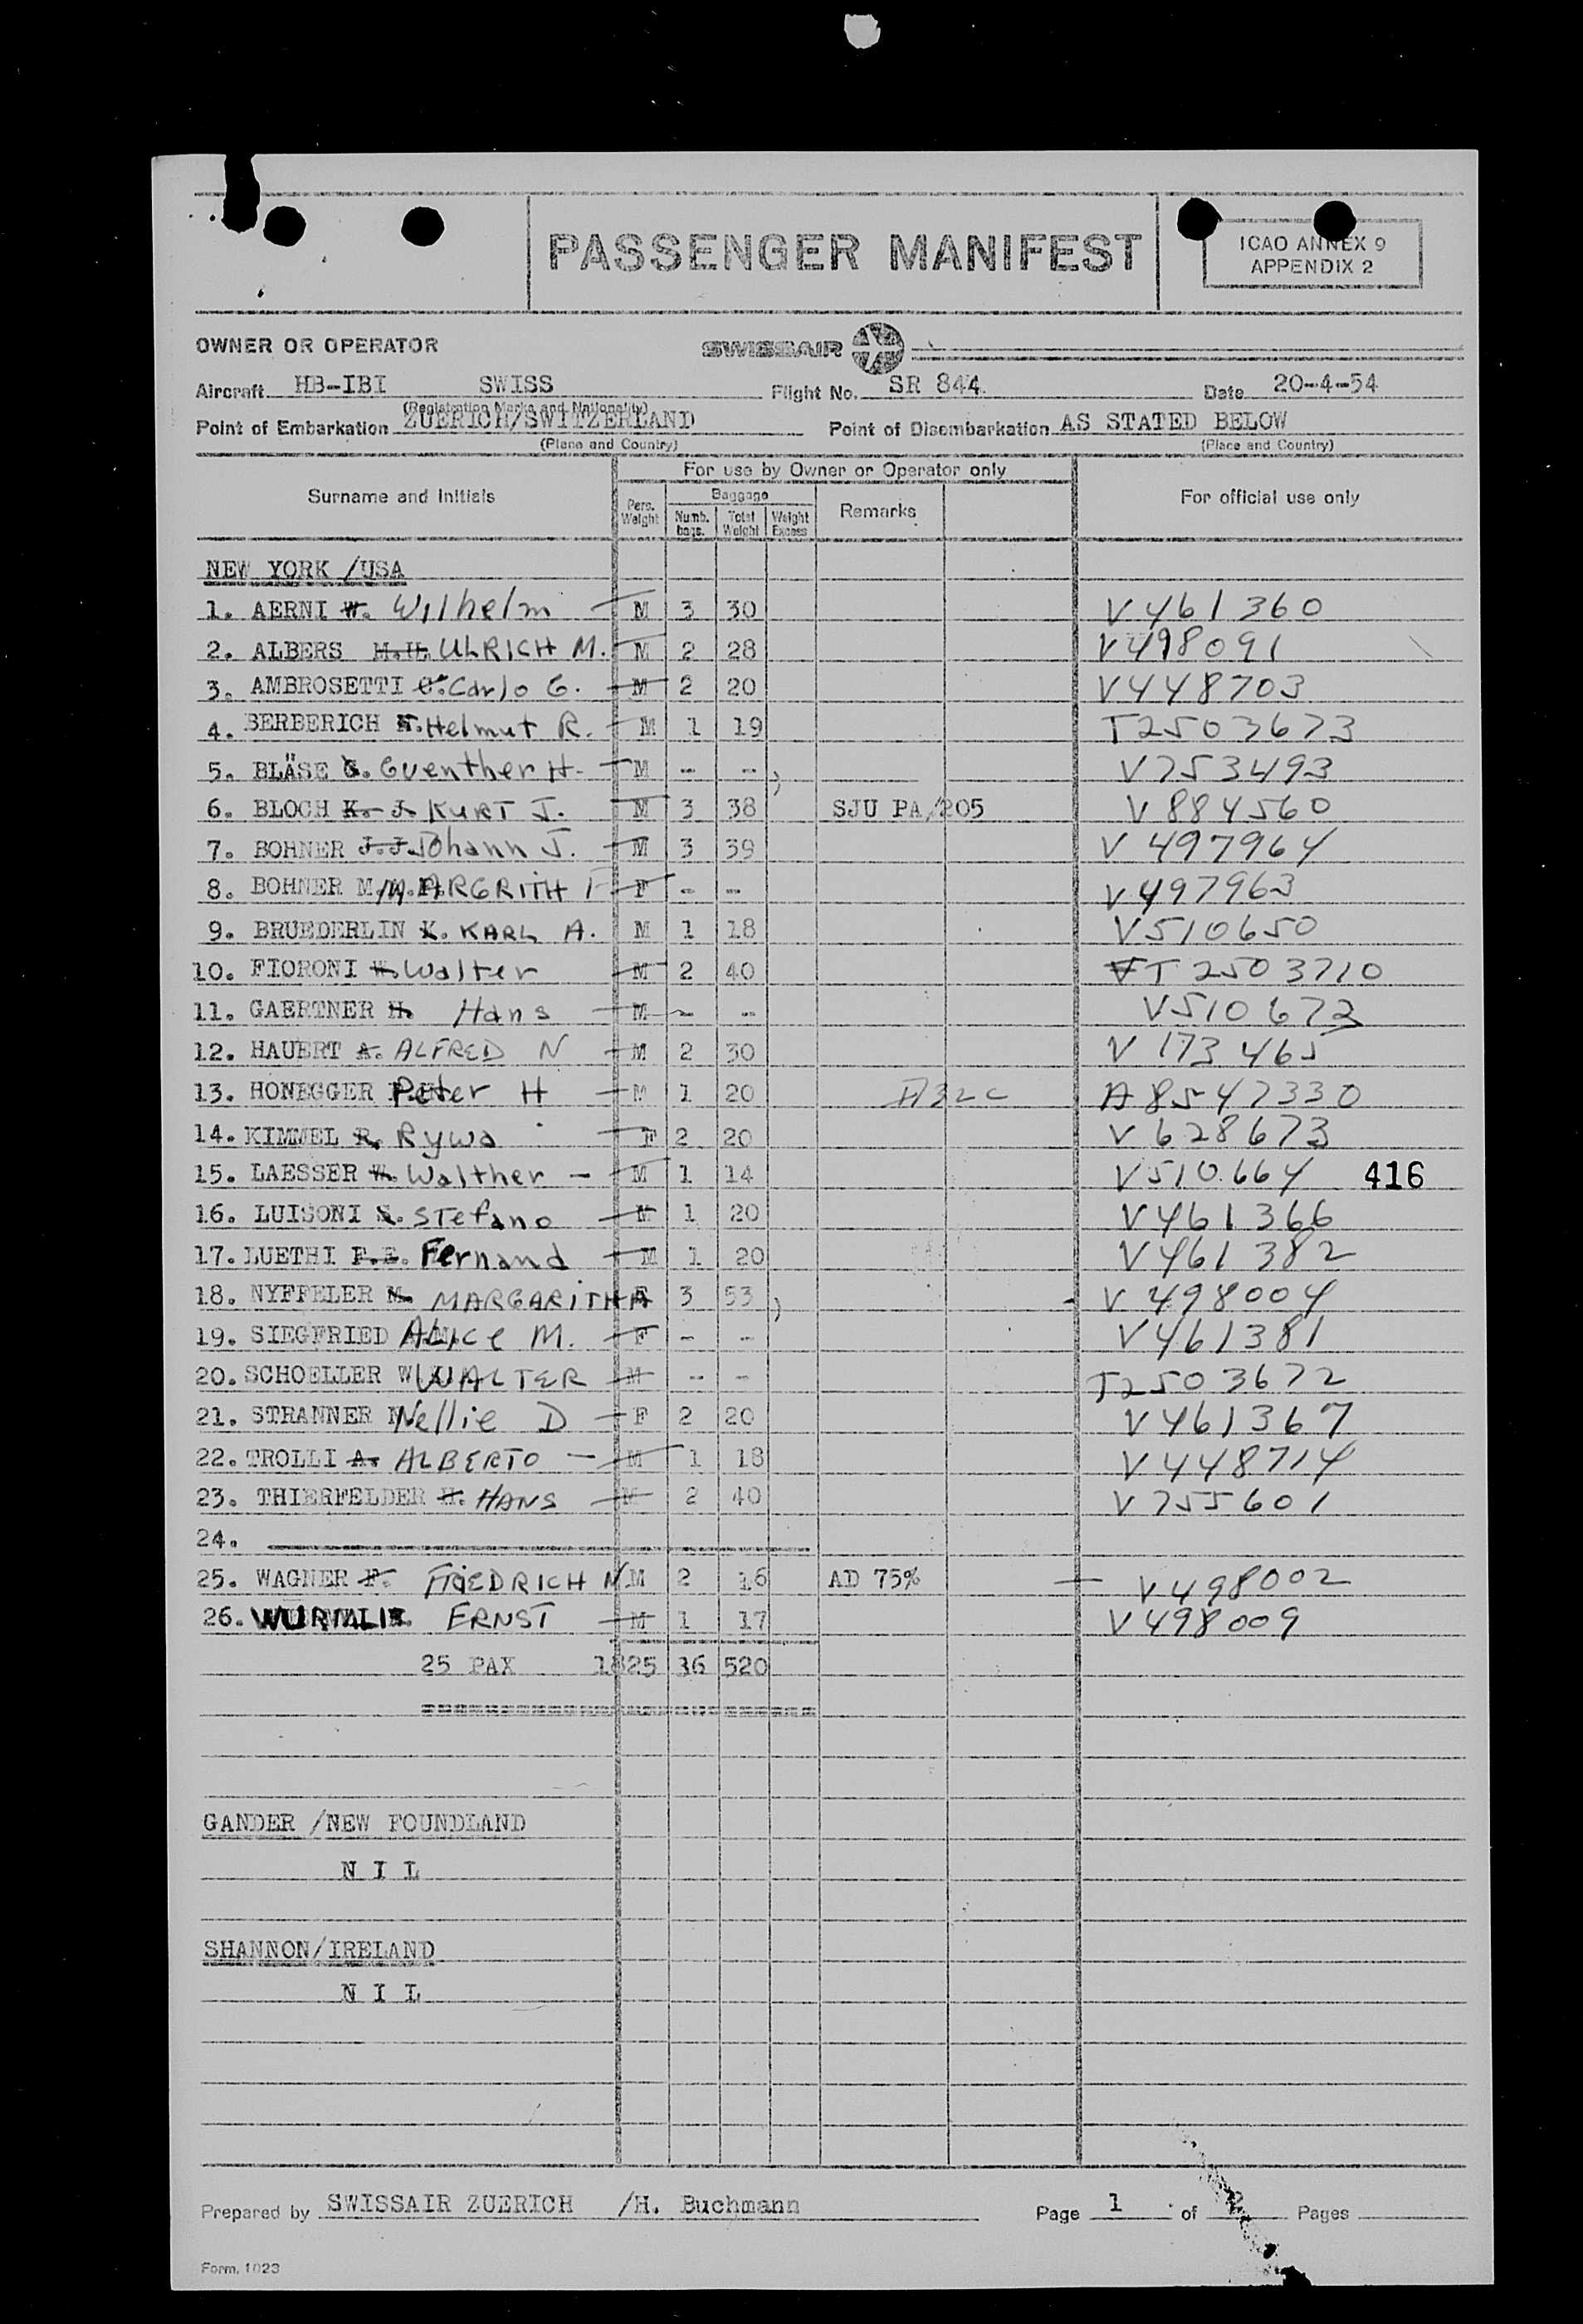 PASSENGER MANIFEST
ICAO ANNEX 9
APPENDIX 2
OWNER OR OPERATOR SWISSAIR
Aircraft HB-IBI SWISS Flight No. SR 844 Date 20-4-54
(Registration Marks and Nationality)
Point of Embarkation ZUERICH/SWITZERLAND Point of Disembarkation AS STATED BELOW
(Place and Country) (Place and Country)
For use by Owner or Operator only
Surname and Initials Pers. Weight Baggage Numb. bags. Total Weight Weight Excess Remarks For official use only
NEW YORK /USA
1. AERNI W. Wilhelm M 3 30 V461360
2. ALBERS M.U. ULRICH M. M 2 28 V498091
3. AMBROSETTI C. Carlo G. M 2 20 V448703
4. BERBERICH H. Helmut R. M 1 19 T2503673
5. BLÄSE G. Guenther H. M -- -- ) V753493
6. BLOCH K. J. KURT J. M 3 38 SJU PA/205 V884560
7. BOHNER J.J. Johann J. M 3 39 V497964
8. BOHNER M. MARGRITH F F - -- V497963
9. BRUEDERLIN K. KARL A. M 1 18 V510650
10. FIORONI W. Walter M 2 40 V T2503710
11. GAERTNER H. Hans M - -- V510673
12. HAUERT A. ALFRED N M 2 30 V173465
13. HONEGGER Peter H M 1 20 A32C A8547330
14. KIMMEL R. Rywa F 2 20 V628673
15. LAESSER W. Walther - M 1 14 V510664 416
16. LUISONI S. Stefano M 1 20 V461366
17. LUETHI F.E. Fernand M 1 20 V461382
18. NYFFELER M. MARGARITHA F 3 53 ) V498004
19. SIEGFRIED ALice M. F - -- V461381
20. SCHOELLER W WALTER M -- - T2503672
21. STRANNER N Nellie D F 2 20 V461367
22. TROLLI A. ALBERTO - M 1 18 V448714
23. THIERFELDER H. HANS M 2 40 V755601
24.
25. WAGNER F. FRIEDRICH N M 2 16 AD 75% V498002
26. WURMLI E. ERNST M 1 17 V498009
25 PAX 1825 36 520
GANDER /NEW FOUNDLAND
N I L
SHANNON/IRELAND
N I L
Prepared by SWISSAIR ZUERICH /H. Buchmann Page 1 of 2 Pages
Form. 1023